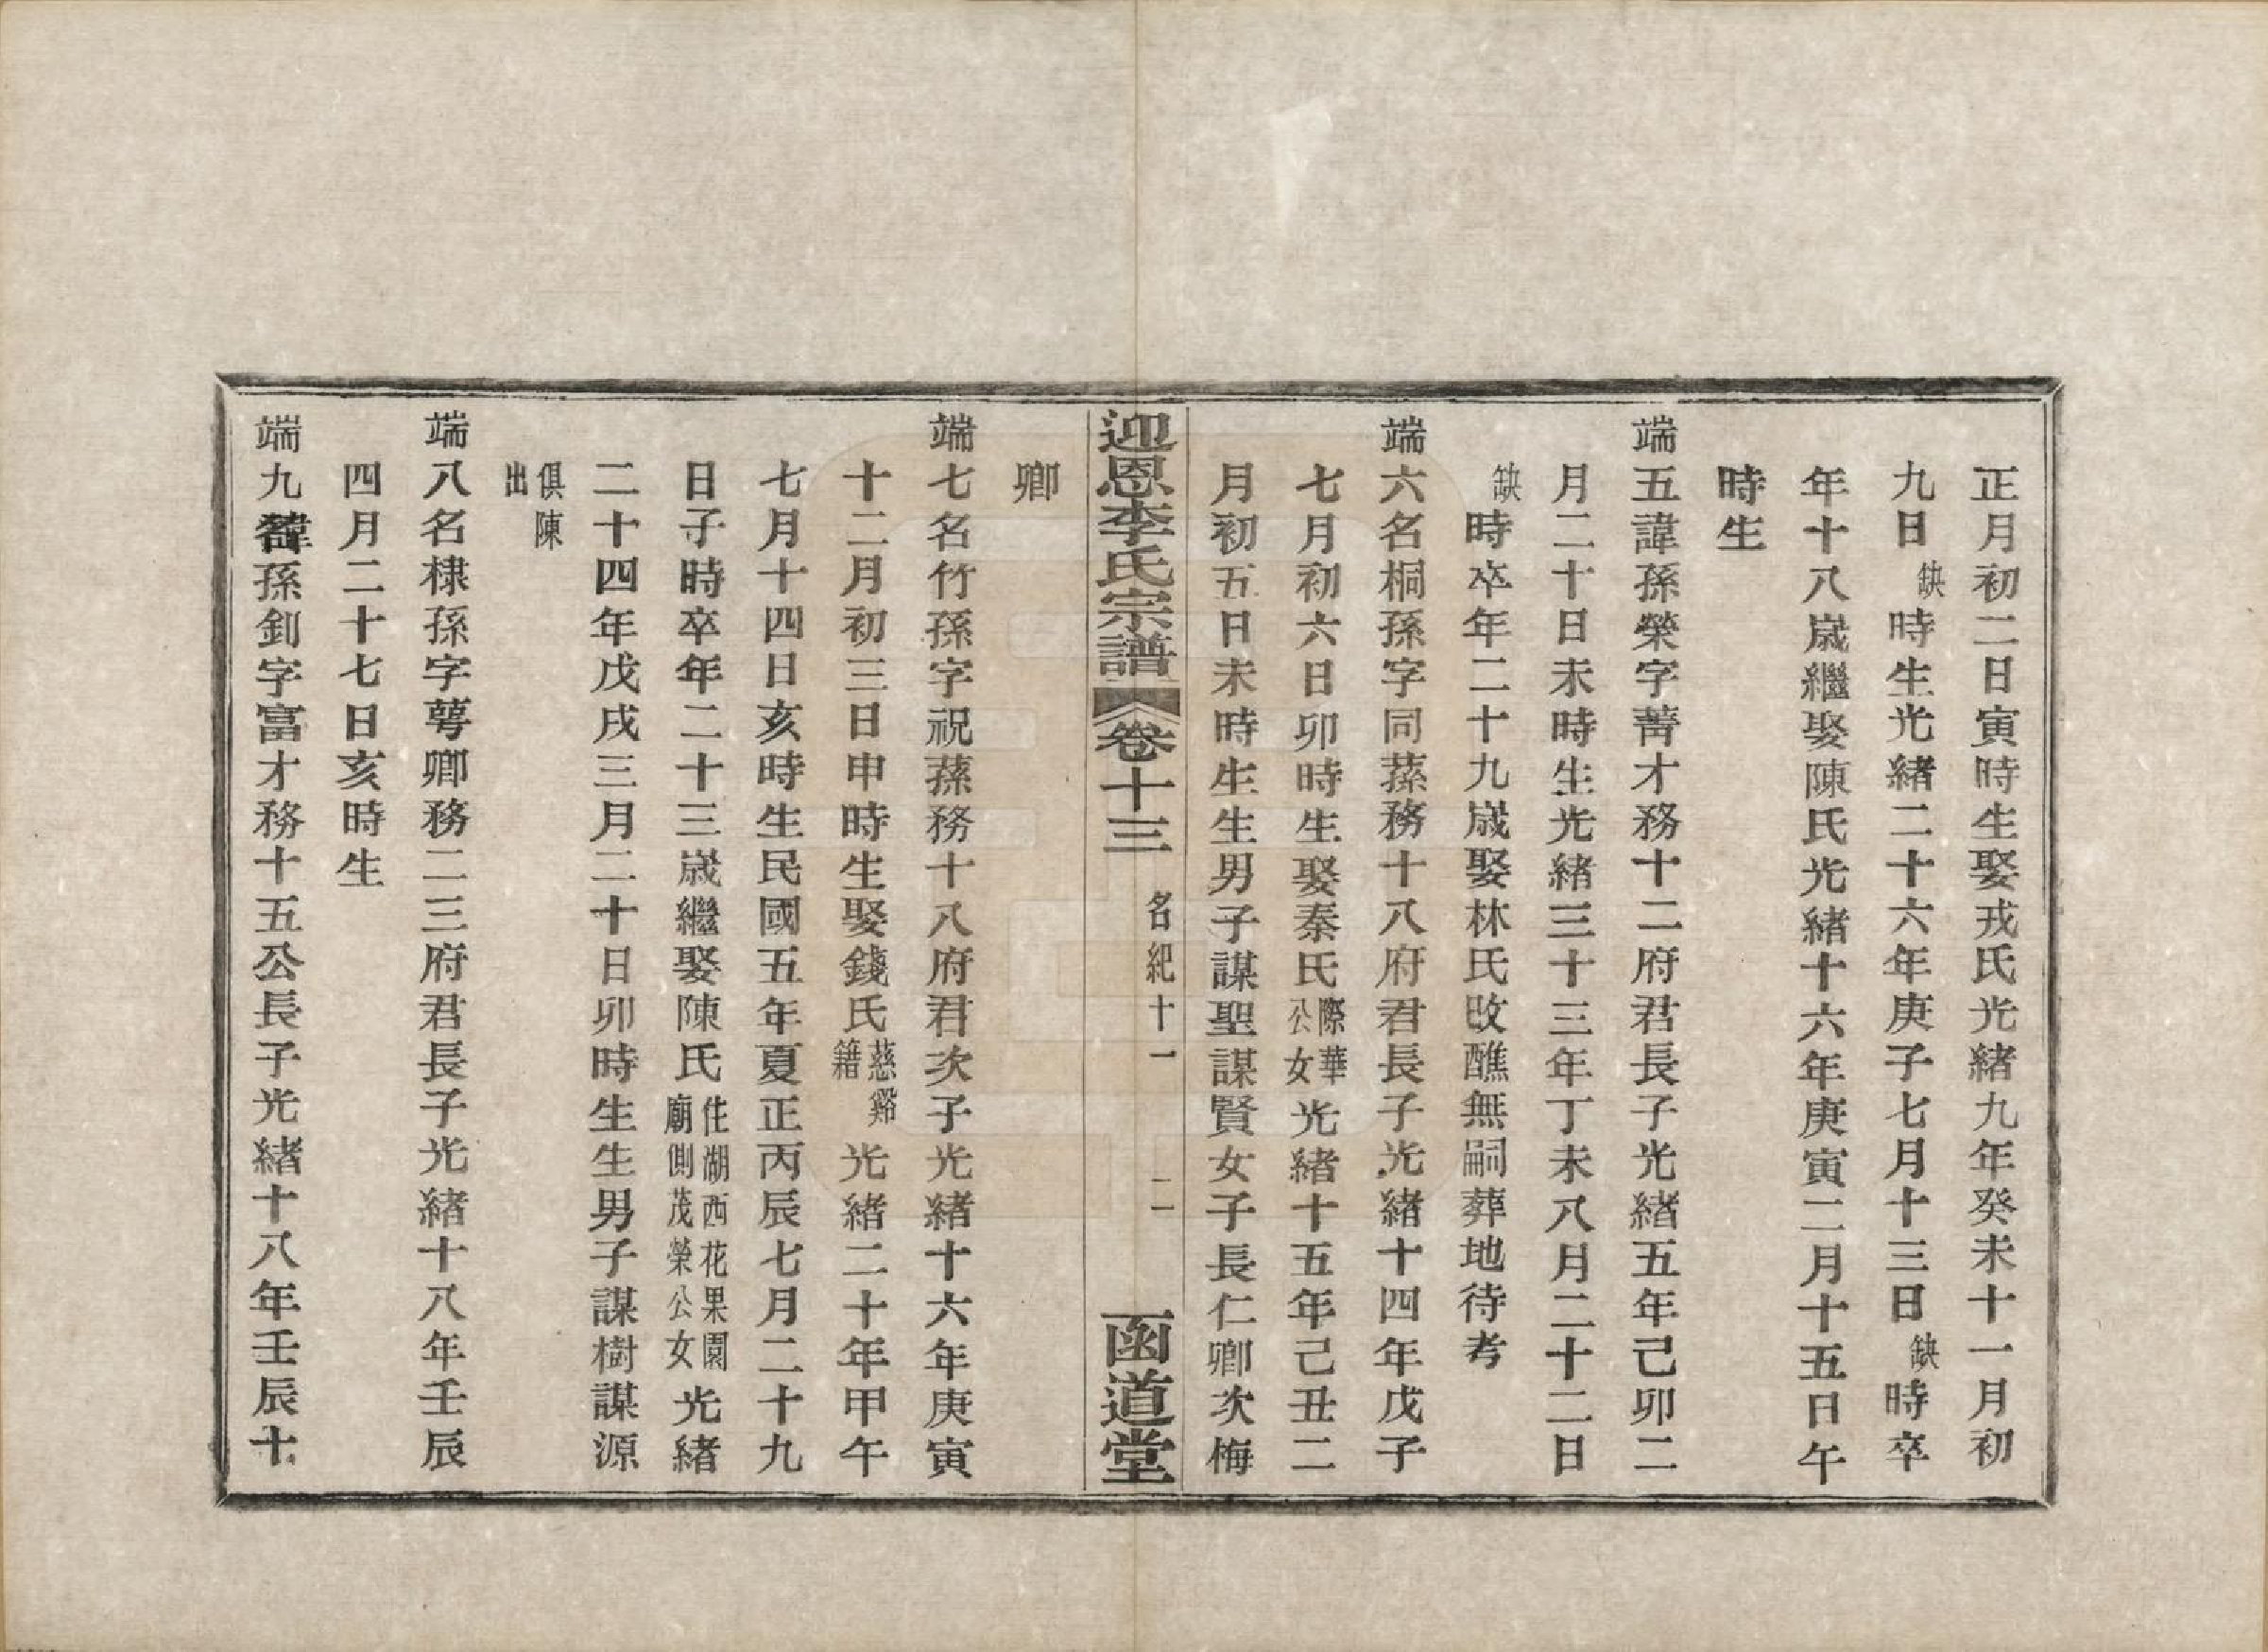 正月初二日寅時生娶戎氏光緒九年癸未十一月初
九日缺時生光緒二十六年庚子七月十三日缺時卒
年十八歲繼娶陳氏光緒十六年庚寅二月十五日午
時生
端五諱孫榮字菁才務十二府君長子光緒五年己卯二
月二十日未時生光緒三十三年丁未八月二十二日
缺時卒年二十九歲娶林氏改醮無嗣葬地待考
端六名桐孫字同蓀務十八府君長子光緒十四年戊子
七月初六日卯時生娶秦氏際華公女光緒十五年己丑二
月初五日未時生生男子謀聖謀賢女子長仁卿次梅
迎恩李氏宗譜 卷十三 名紀十一 二 函道堂
卿
端七名竹孫字祝蓀務十八府君次子光緒十六年庚寅
十二月初三日申時生娶錢氏慈谿籍光緒二十年甲午
七月十四日亥時生民國五年夏正丙辰七月二十九
日子時卒年二十三歲繼娶陳氏住湖西花果園廟側茂榮公女光緒
二十四年戊戌三月二十日卯時生生男子謀樹謀源
俱陳出
端八名棣孫字萼卿務二三府君長子光緒十八年壬辰
四月二十七日亥時生
端九諱孫釗字富才務十五公長子光緒十八年壬辰十